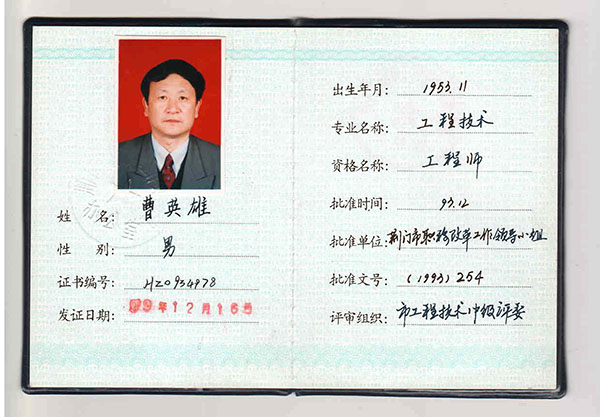 姓 名: 曹英雄
性 别: 男
证书编号: HZ0934978
发证日期: 93年12月16日
出生年月: 1953.11
专业名称: 工程技术
资格名称: 工程师
批准时间: 93.12
批准单位: 荆门市职称改革工作领导小组
批准文号: (1993) 254
评审组织: 市工程技术中级评委